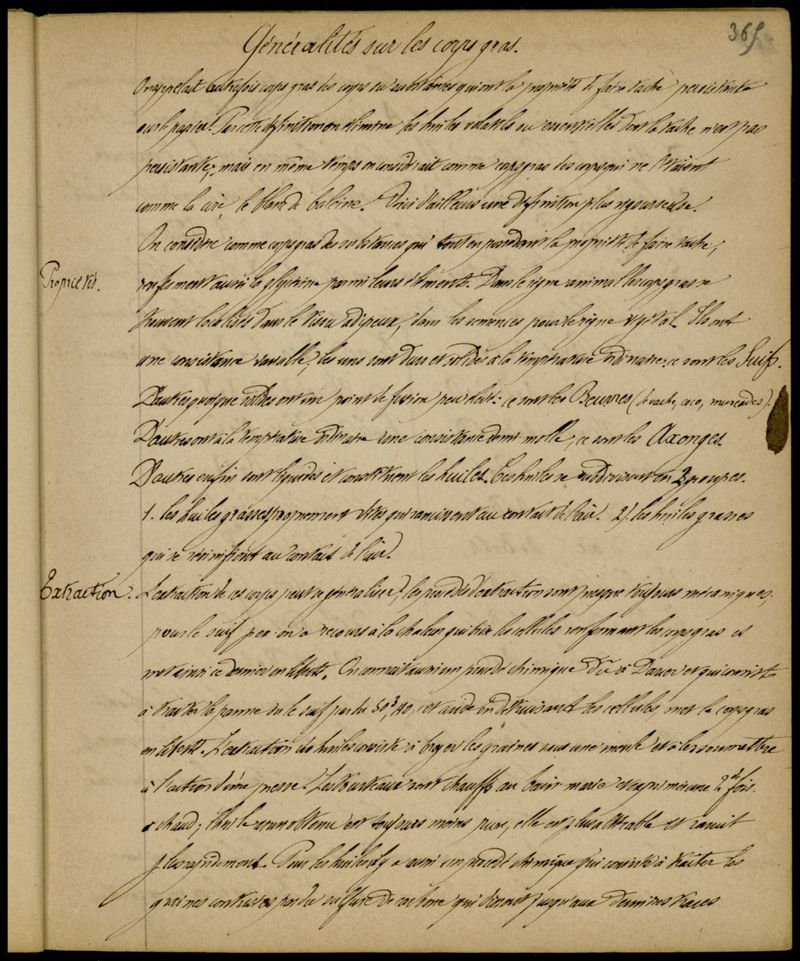 365
Généralités sur les corps gras.
On appelait autrefois corps gras des corps ou substances qui ont la propriété de faire tache persistante
sur le papier. Par cette définition on élimine les huiles volatiles ou essentielles dont la tache n'est pas
persistante; mais en même temps on considérait comme corps gras des corps qui ne l'étaient
comme la cire, le blanc de baleine. Voici d'ailleurs une définition plus rigoureuse.
On considère comme corps gras des substances qui tout en possédant la propriété de faire tache,
Propriétés.
renferment aussi la glycérine parmi leurs éléments. Dans le règne animal les corps gras se
trouvent localisés dans le tissu adipeux, dans les semences pour le règne végétal. Ils ont
une consistance variable, les uns sont durs et solides à la température ordinaire: ce sont les Suifs.
D'autres quoique solides ont un point de fusion peu élevé: ce sont les Beurres (de vache, coco, muscades).
D'autres ont à la température ordinaire une consistance demi molle, ce sont les Axonges.
D'autres enfin sont liquides et constituent les huiles. Ces huiles se subdivisent en 2 groupes.
1. les huiles grasses proprement dites qui rancissent au contact de l'air. 2). les huiles grasses
qui se résinifient au contact de l'air.
Extraction. L'extraction de ces corps peut se généraliser, les procédés d'extraction sont presque toujours mécaniques,
pour le suif par on a recours à la chaleur qui brise les cellules renfermant les corps gras et
met ainsi ce dernier en liberté. On connait aussi un procédé chimique dû à Darcet et qui consiste
à traiter la panne ou le suif par de SO³,HO, cet acide en détruisant les cellules met le corps gras
en liberté. L'extraction des huiles consiste à broyer les graines sous une meule et à les soumettre
à l'action d'une presse. Les tourteaux sont chauffés au bain marie et exprimés une 2de fois
à chaud; l'huile ainsi obtenue est toujours moins pure, elle est plus altérable et rancit
plus rapidement. Pour les huiles il y a aussi un procédé chimique qui consiste à traiter les
graines contusées par du sulfure de carbone qui dissout jusqu'aux dernières traces